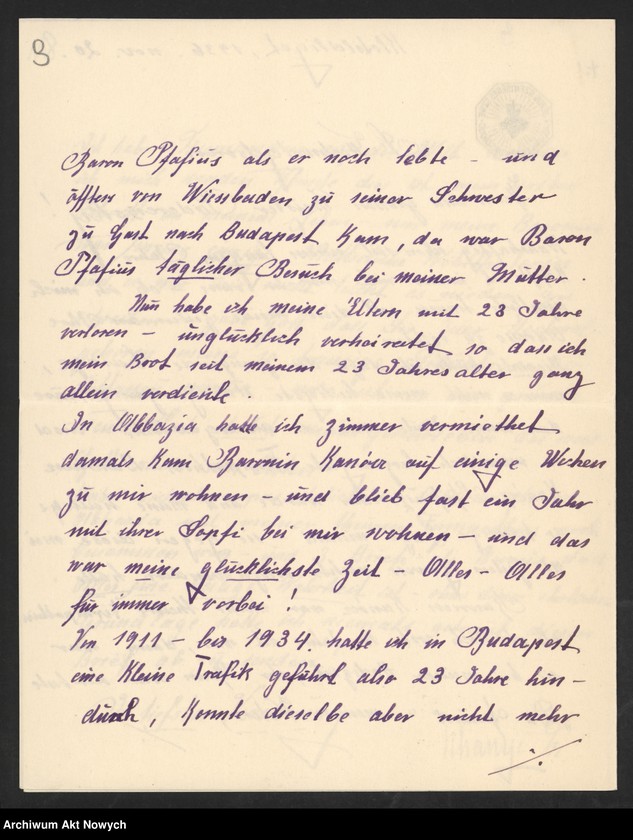 3
Baron Pfafius als er noch lebte - und
öfters von Wiesbaden zu seiner Schwester
zu Gast nach Budapest kam, da war Baron
Pfafius täglicher Besuch bei meiner Mutter.
Nun habe ich meine Eltern mit 23 Jahre
verloren - unglücklich verheiratet so dass ich
mein Brot seit meinem 23 Jahresalter ganz
allein verdiente.
In Abbazia hatte ich Zimmer vermiethet
damals kam Baronin auf einige Wochen
zu mir wohnen - und blieb fast ein Jahr
mit ihrer Sopfi bei mir wohnen - und das
war meine glücklichste Zeit - Alles - Alles
für immer vorbei!
Von 1911 - bis 1934. hatte ich in Budapest
eine kleine Trafik geführt also 23 Jahre hin-
durch, konnte dieselbe aber nicht mehr
./.
Archiwum Akt Nowych